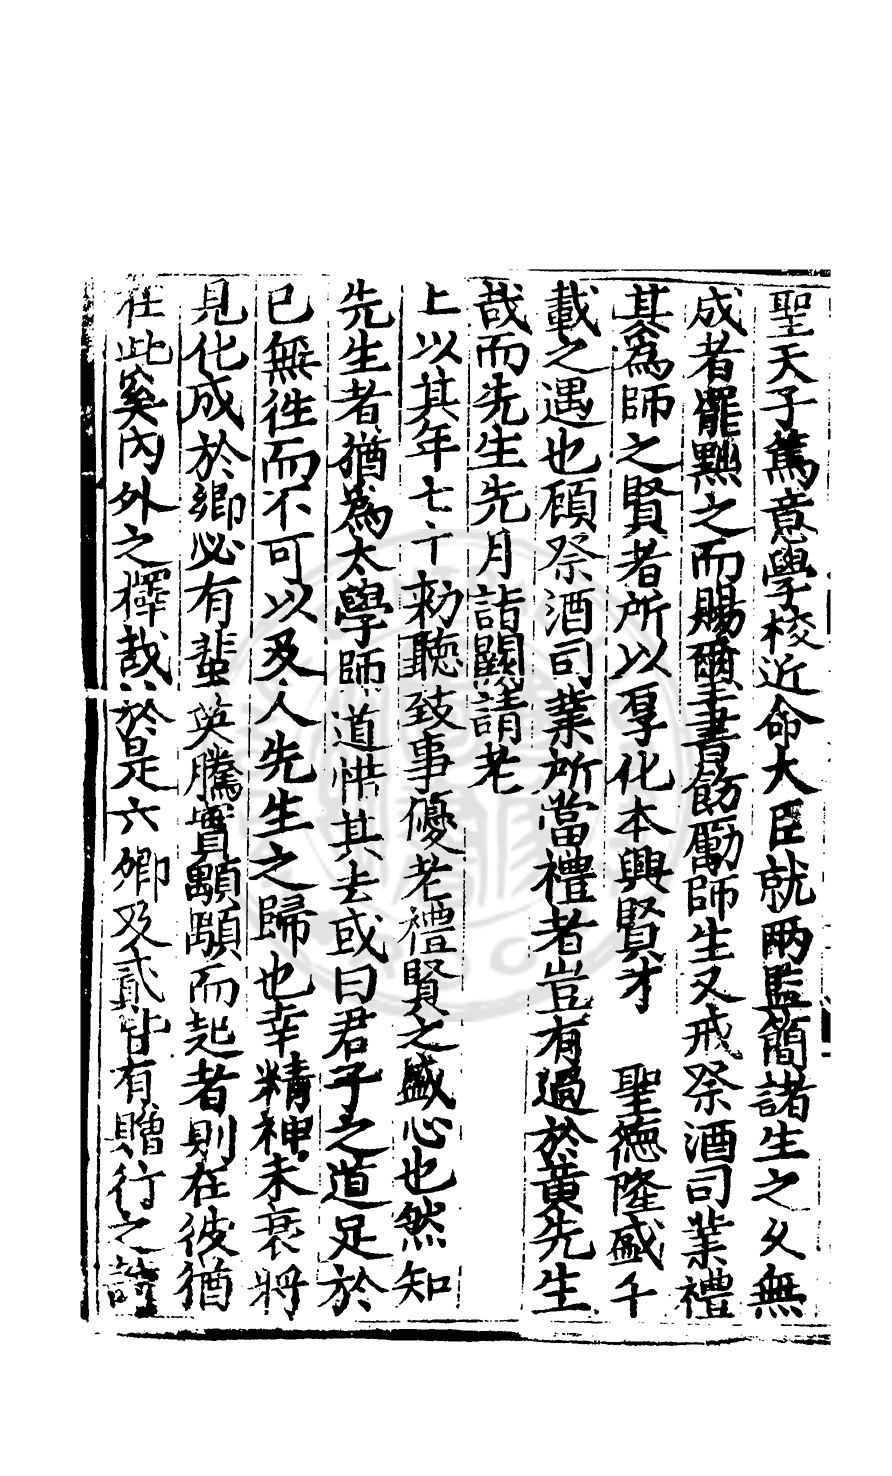 聖天子篤意學校近命大臣就兩監簡諸生之乆無
成者罷黜之而賜璽書飭勵師生又戒祭酒司業禮
其為師之賢者所以厚化本興賢才　聖德隆盛千
載之遇也顧祭酒司業所當禮者豈有過於黄先生
哉而先生先月詣闕請老
上以其年七十勑聽致事優老禮賢之盛心也然知
先生者猶為太學師道惜其去或曰君子之道足於
已無徃而不可以及人先生之歸也幸精神未衰將
見化成於鄉必有蜚英騰實顒顒而起者則在彼猶
在此奚内外之擇哉於是六卿及貳皆有贈行之詩